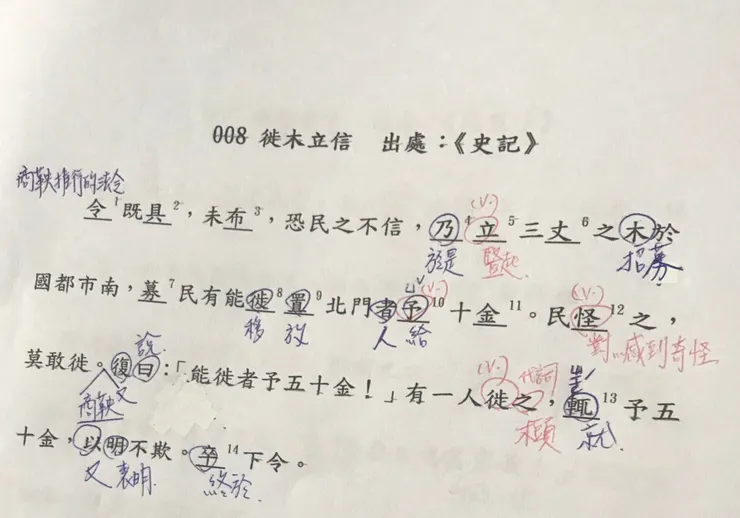 008 徙木立信 出處：《史記》
商鞅推行的法令
令1既具2，未布3，恐民之不信，乃4立5三丈6之木於
(v.)
於是 豎起 招募
國都市南，募7民有能徙8置9北門者予10十金11。民怪12之，
(v.) (v.)
移 放 人 給 對…感到奇怪
莫敢徙。復曰：「能徙者予五十金！」有一人徙之，輒13予五
說 (v.) 代詞 ㄓㄜˊ
商鞅又 木頭 就
十金，以明不欺。卒14下令。
又 表明 終於